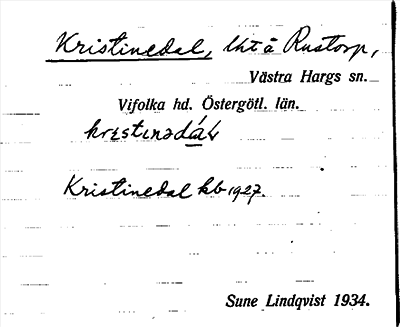 Kristinedal, lht å Rustorp,
Västra Hargs sn.
Vifolka hd. Östergötl. län.
Kristinedal kb 1927.
Sune Lindqvist 1934.